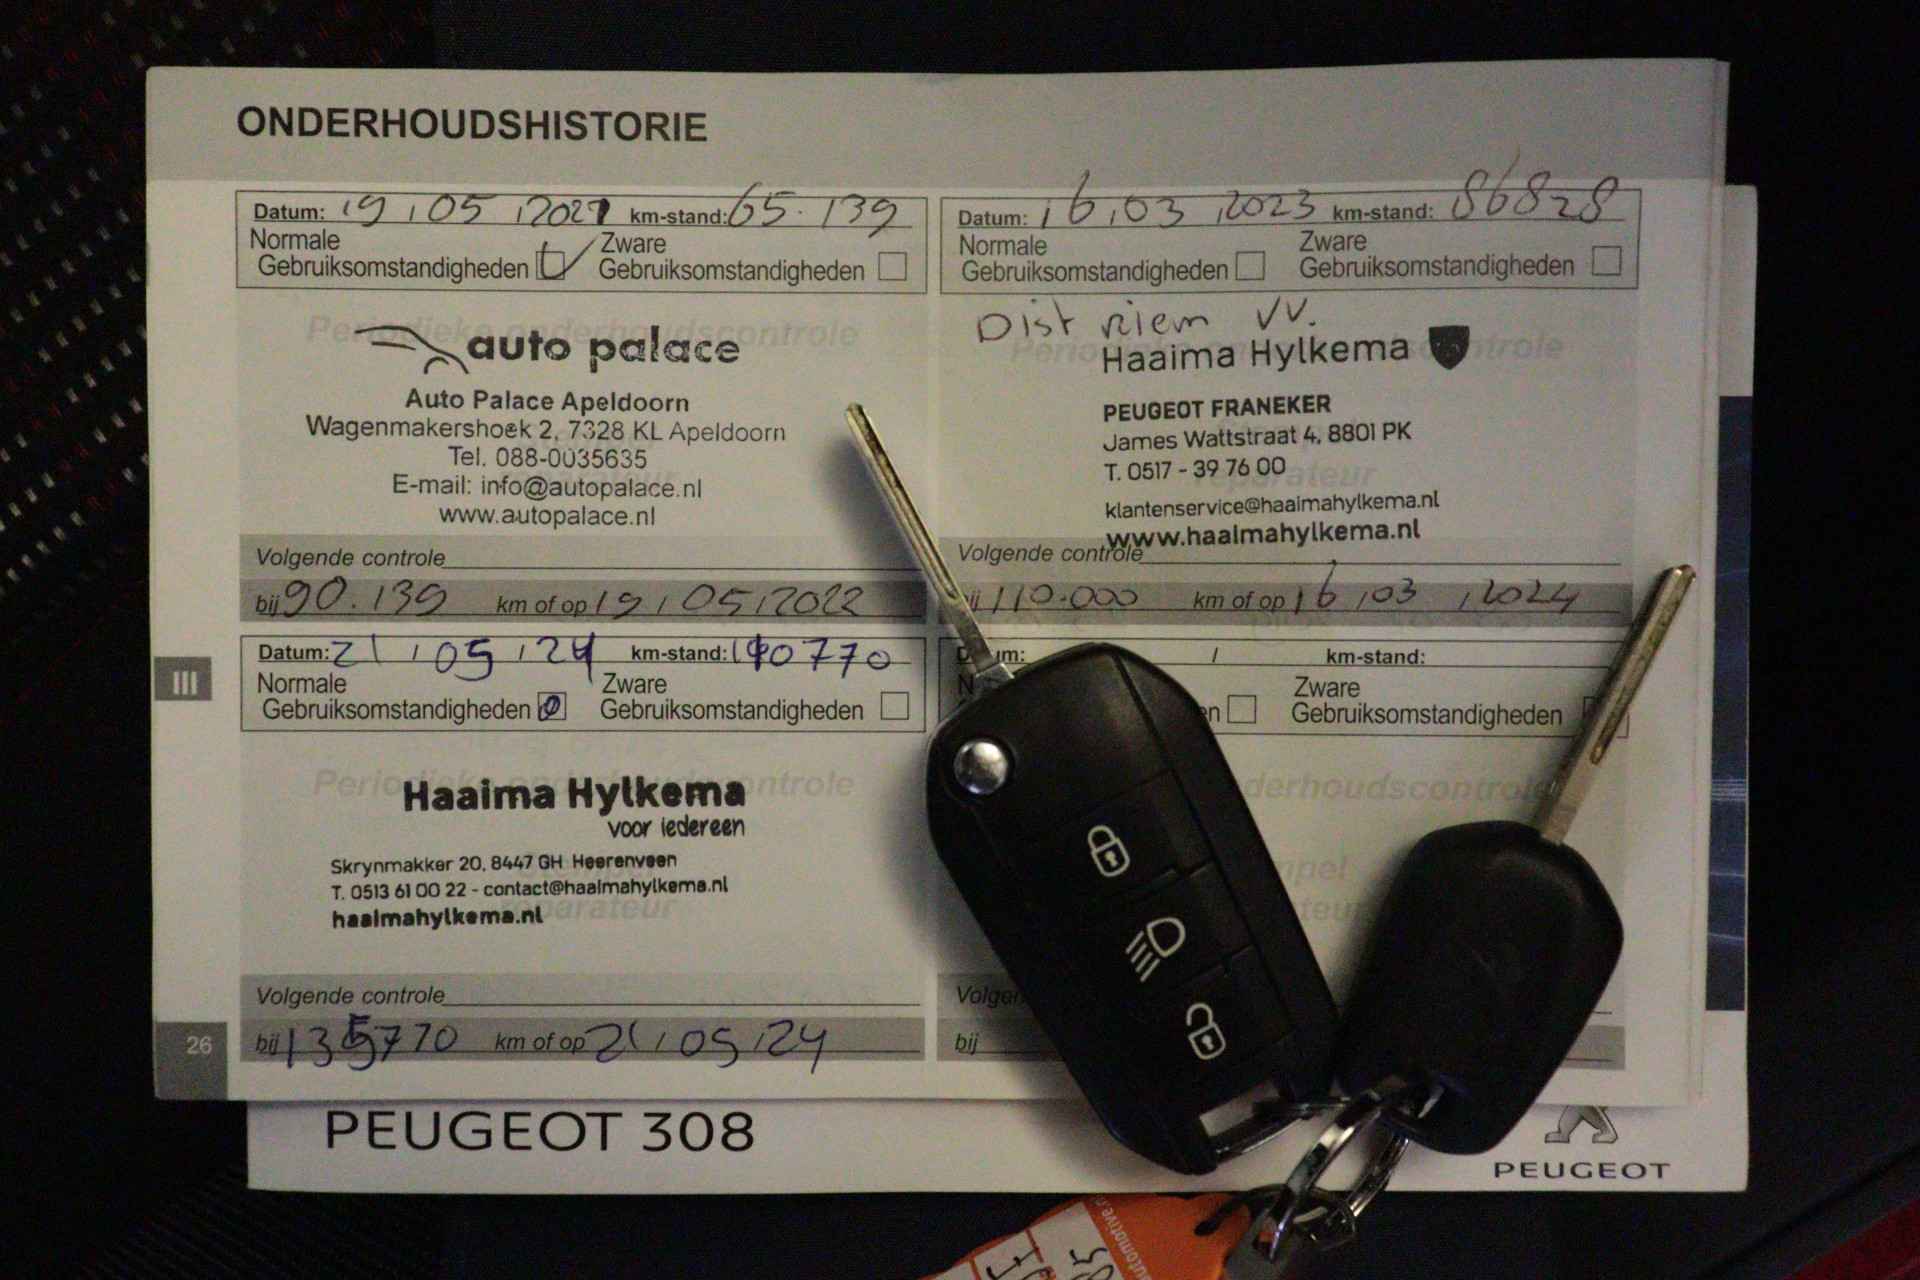 ONDERHOUDSHISTORIE
Datum: 19 / 05 / 2021 km-stand: 65.139
Normale Gebruiksomstandigheden Zware Gebruiksomstandigheden
Periodieke onderhoudscontrole
auto palace
Auto Palace Apeldoorn
Wagenmakershoek 2, 7328 KL Apeldoorn
Tel. 088-0035635
E-mail: info@autopalace.nl
www.autopalace.nl
Volgende controle
bij 90.139 km of op 19 / 05 / 2022
Datum: 16 / 03 / 2023 km-stand: 86828
Normale Gebruiksomstandigheden Zware Gebruiksomstandigheden
Dist riem VV.
Periodieke onderhoudscontrole
Haaima Hylkema
PEUGEOT FRANEKER
James Wattstraat 4, 8801 PK
T. 0517 - 39 76 00
reparateur
klantenservice@haaimahylkema.nl
www.haaimahylkema.nl
Volgende controle
bij 110.000 km of op 16 / 03 / 2024
III
Datum: 21 / 05 / 24 km-stand: 110770
Normale Gebruiksomstandigheden Zware Gebruiksomstandigheden
Periodieke onderhoudscontrole
Haaima Hylkema
voor iedereen
Skrynmakker 20, 8447 GH Heerenveen
T. 0513 61 00 22 - contact@haaimahylkema.nl
reparateur
haaimahylkema.nl
Volgende controle
bij 135770 km of op 21 / 05 / 24
/ km-stand:
Zware Gebruiksomstandigheden
bij
26
PEUGEOT 308
PEUGEOT